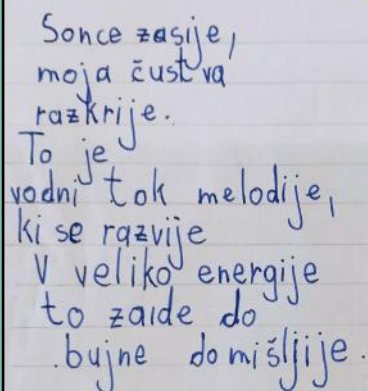 Sonce zasije,
moja čustva
razkrije.
To je
vodni tok melodije,
ki se razvije
V veliko energije
to zaide do
bujne domišljije.